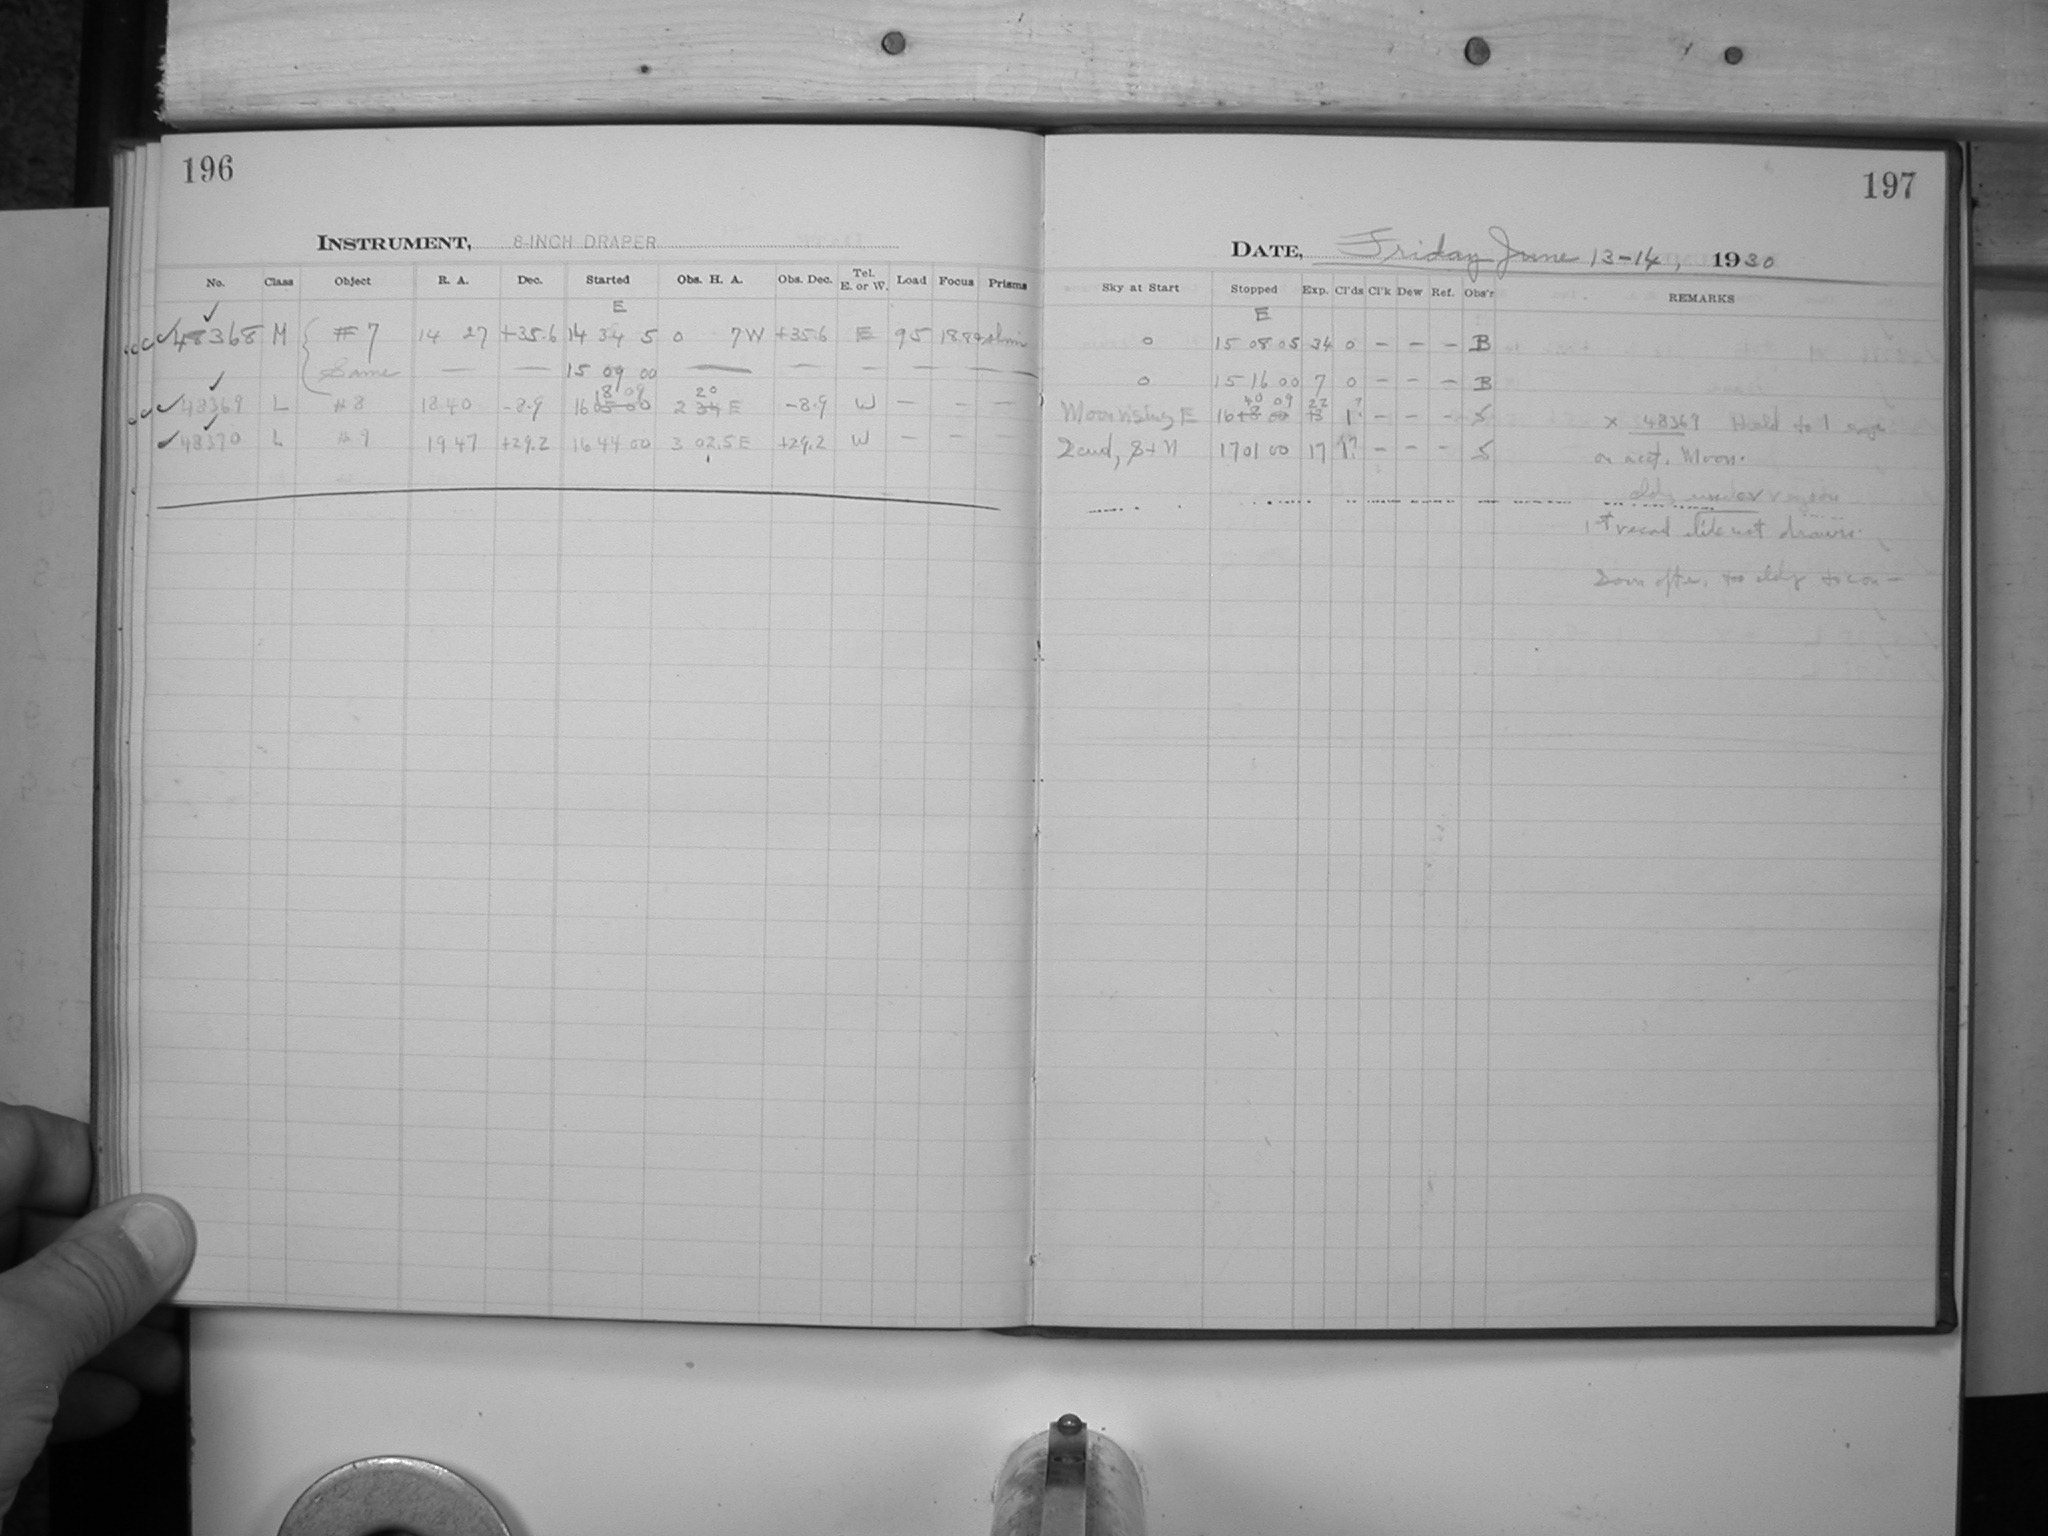 196
INSTRUMENT, 8-INCH DRAPER
No. Class Object R. A. Dec. Started Obs. H. A. Obs. Dec. Tel. E. or W. Load Focus Prisms
E
48368 M # 7 14 27 +35.6 14 34 5 0 7W +35.6 E 95
Same — — 15 09 00 — — — — — —
18 09 20
48369 L # 8 18 40 -8.9 16 05 00 2 34 E -8.9 W — — —
48370 L # 9 19 47 +29.2 16 44 00 3 02.5 E +29.2 W — — —
197
DATE, Friday June 13-14, 1930
Sky at Start Stopped Exp. Cl'ds Cl'k Dew Ref. Obs'r REMARKS
E
0 15 08 05 34 0 — — — B
0 15 16 00 7 0 — — — B
40 09 22 ?
Moon rising E 16 18 00 13 1 — — — S x 48369 Held to 1 exp
17 01 00 17 1 — — — S on acct. Moon.
1st